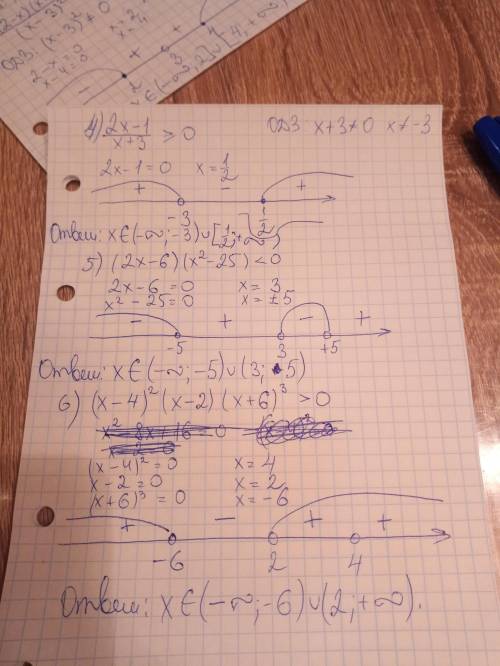 2-x=0
x-4=0
ОДЗ: (x-3)²≠0
4) 2x-1/x+3 ≥ 0 ОДЗ x+3≠0 x≠-3
2x-1=0 x=1/2
+ - +
-3 1/2
Ответ: x∈(-∞;-3)∪[1/2;+∞)
5) (2x-6)(x²-25)<0
2x-6=0 x=3
x²-25=0 x=±5
- + - +
-5 3 +5
Ответ: x∈(-∞;-5)∪(3;5)
6) (x-4)²(x-2)(x+6)³>0
(x-4)²=0 x=4
x-2=0 x=2
(x+6)³=0 x=-6
+ - + +
-6 2 4
Ответ: x∈(-∞;-6)∪(2;+∞).